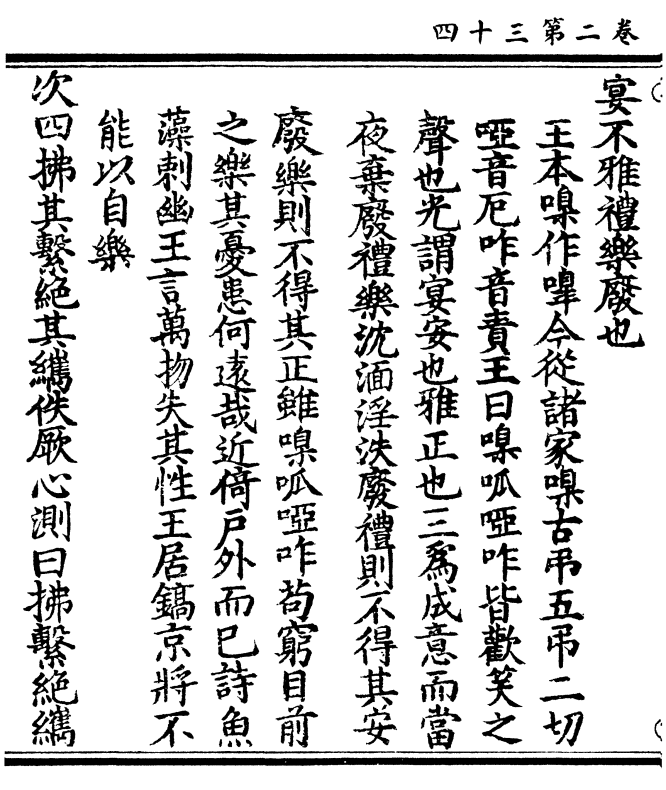 卷二第三十四
宴不雅禮樂廢也
王本嘷作嘷今從諸家嘷古弔五弔二切
啞音厄咋音責王曰嘷呱啞咋皆歡笑之
聲也光謂宴安也雅正也三爲成意而當
夜棄廢禮樂沈湎淫泆廢禮則不得其安
廢樂則不得其正雖嘷呱啞咋苟窮目前
之樂其憂患何遠哉近倚戶外而已詩魚
藻刺幽王言萬物失其性王居鎬京將不
能以自樂
次四拂其繫絕其纗佚厥心測曰拂繫絕纗